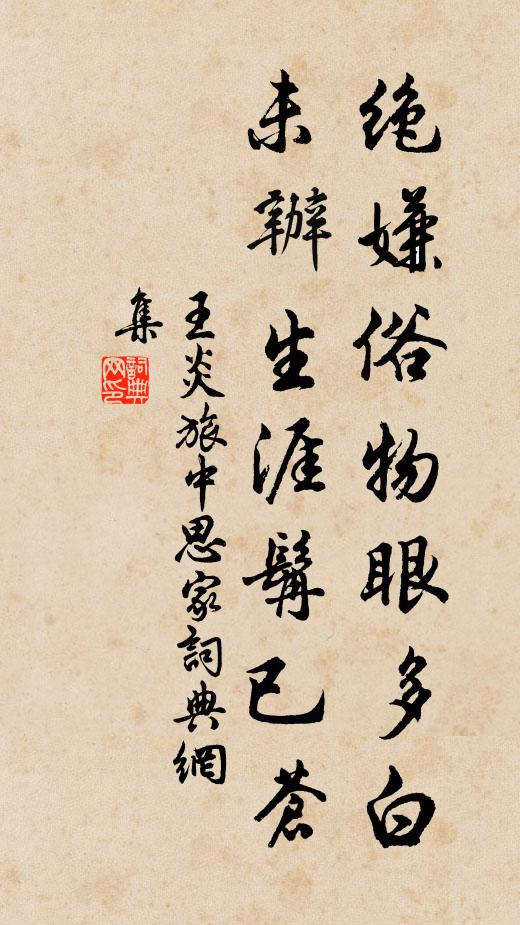 绝嫌俗物眼多白
未辦生涯鬢已蒼
王炎旅中思家詞典網
集
詞典網印